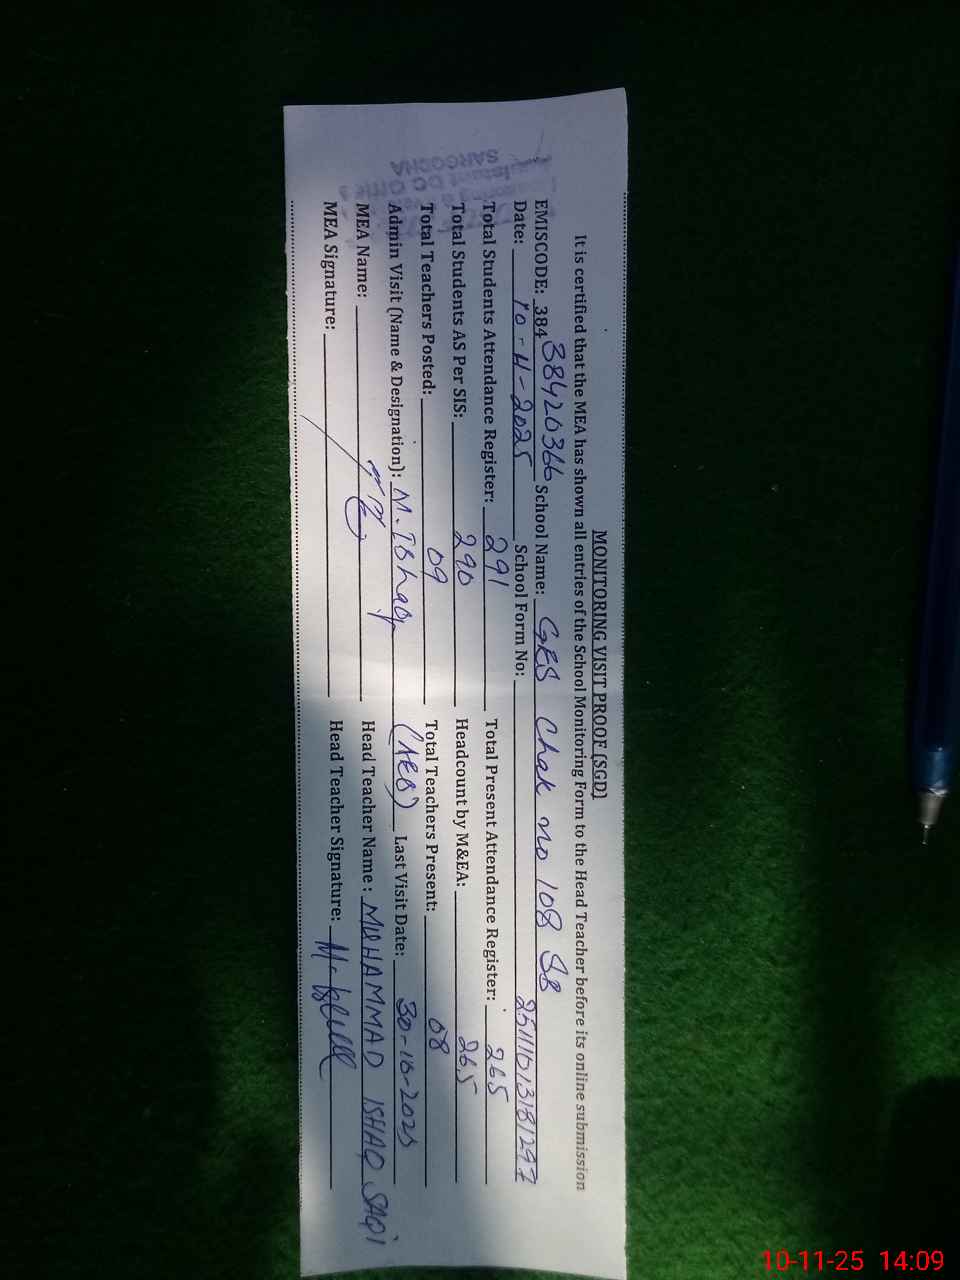 MONITORING VISIT PROOF [SGD]
It is certified that the MEA has shown all entries of the School Monitoring Form to the Head Teacher before its online submission
EMISCODE: 384 38420366 School Name: GES Chak no 108 SB
Date: 10-11-2025 School Form No:
Total Students Attendance Register: 291 Total Present Attendance Register: 265
Total Students AS Per SIS: 290 Headcount by M&EA: 265
Total Teachers Posted: 09 Total Teachers Present: 08
Admin Visit (Name & Designation): M. Ishaq (AEO) Last Visit Date: 30-10-2025
MEA Name: Head Teacher Name : MUHAMMAD ISHAQ SAQi
MEA Signature: Head Teacher Signature:
SARGODHA
10-11-25 14:09